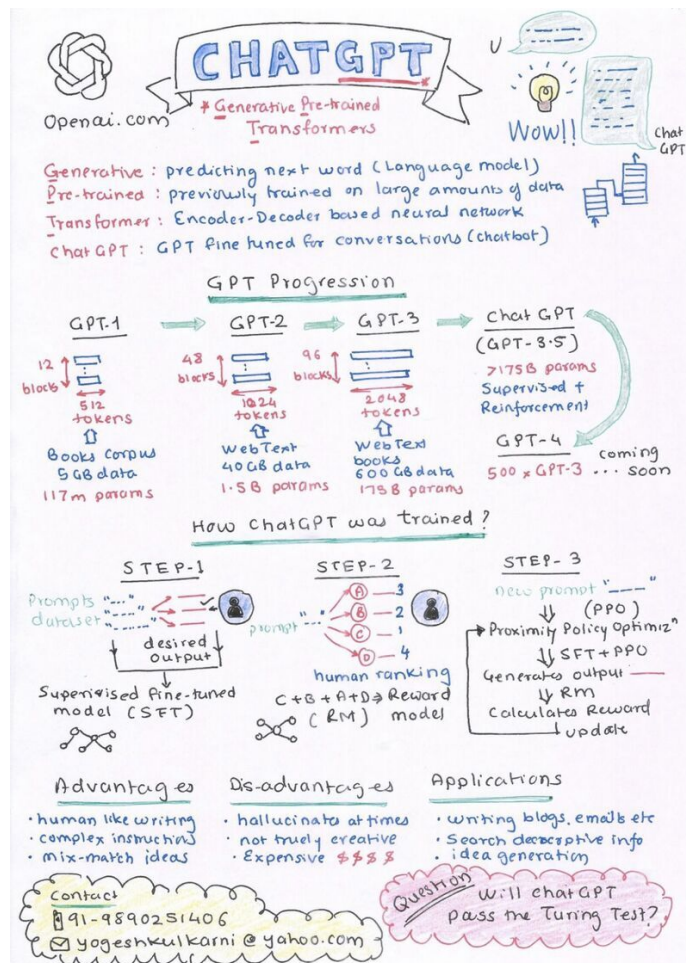 CHATGPT
* Generative Pre-trained
Transformers
Openai.com
U
Wow!!
Chat
GPT
Generative : predicting next word (Language model)
Pre-trained : previously trained on large amounts of data
Transformer : Encoder-Decoder based neural network
Chat GPT : GPT fine tuned for conversations (chatbot)
GPT Progression
GPT-1
12
blocks
512
tokens
Books Corpus
5 GB data
117m params
GPT-2
48
blocks
1024
tokens
WebText
40 GB data
1.5B params
GPT-3
96
blocks
2048
tokens
WebText
books
600 GB data
175B params
Chat GPT
(GPT-3.5)
>175B params
Supervised +
Reinforcement
GPT-4
500 x GPT-3 ... coming soon
How ChatGPT was trained?
STEP-1
Prompts
dataset
desired
output
Supervised fine-tuned
model (SFT)
STEP-2
prompt
A 3
B 2
C 1
D 4
human ranking
C+B+A+D⇒ Reward
(RM) model
STEP-3
new prompt
(PPO)
Proximity Policy Optimizⁿ
SFT+PPO
Generates output
RM
Calculates Reward
update
Advantages
• human like writing
• complex instructions
• mix-match ideas
Dis-advantages
• hallucinates at times
• not truely creative
• Expensive $$$$
Applications
• writing blogs, emails etc
• Search descriptive info
• idea generation
Contact
91-9890251406
yogeshkulkarni@yahoo.com
Question
Will chatGPT
pass the Turing Test?